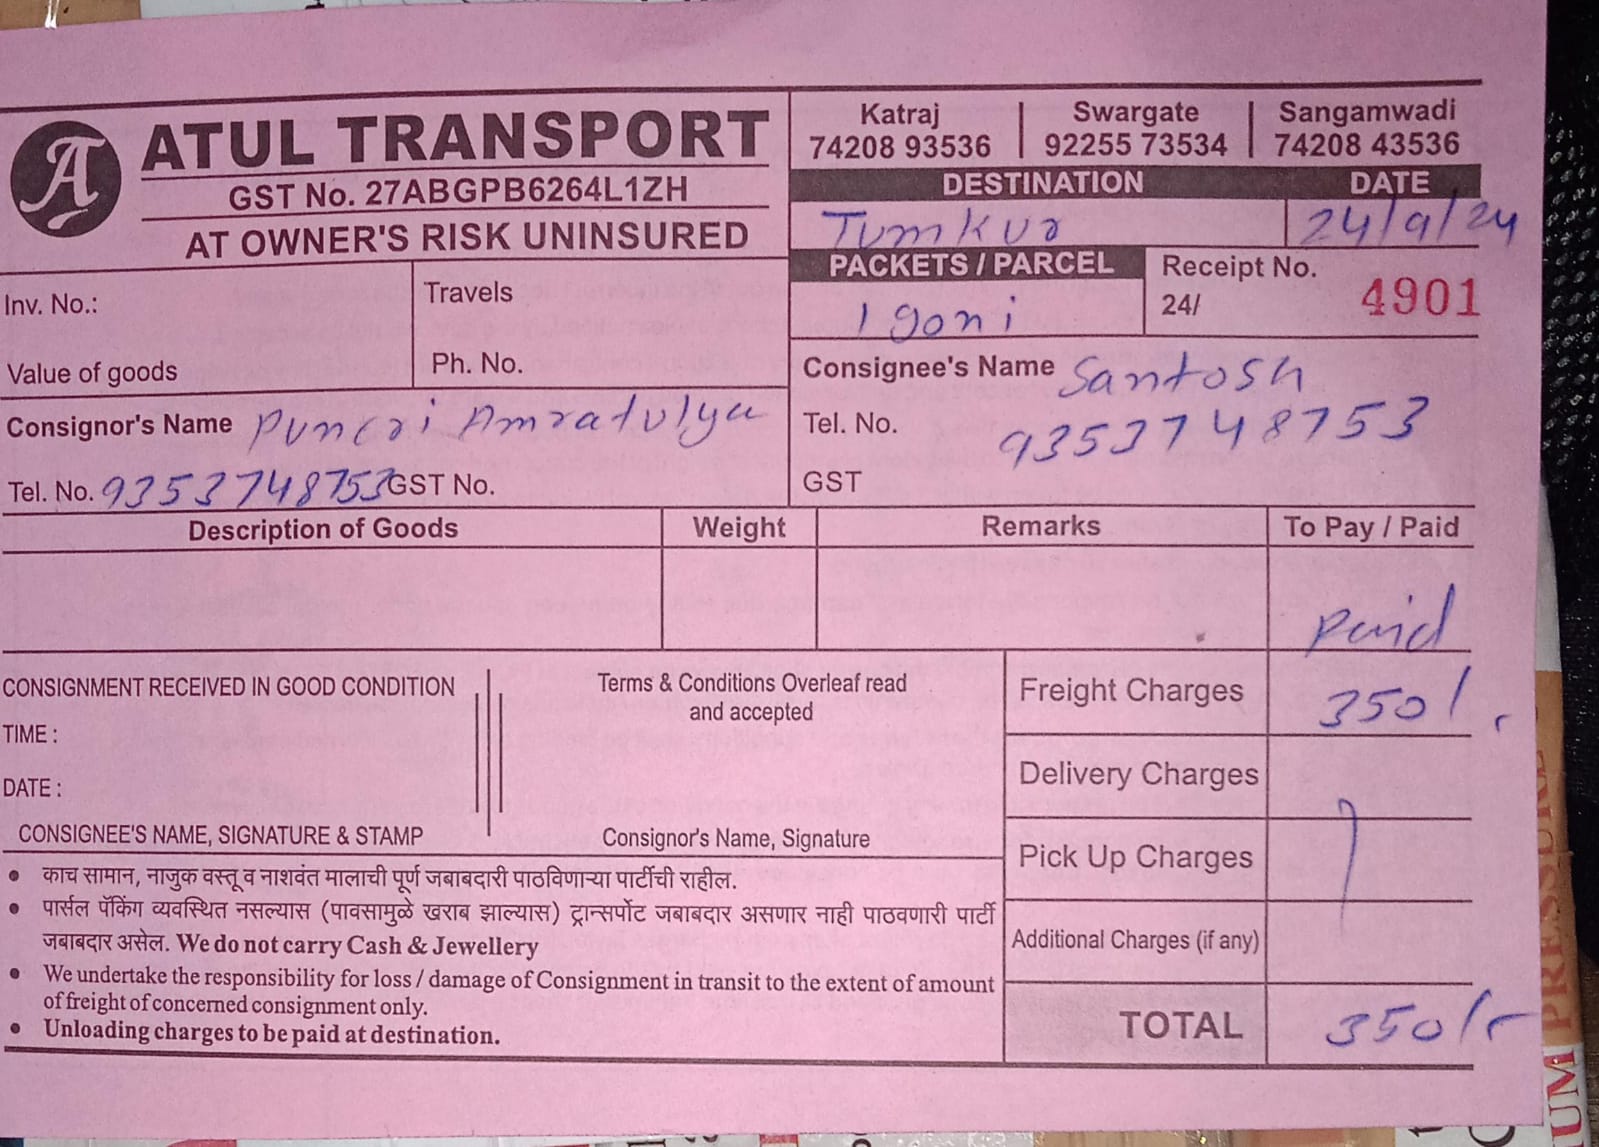 A ATUL TRANSPORT
GST No. 27ABGPB6264L1ZH
AT OWNER'S RISK UNINSURED
Katraj | Swargate | Sangamwadi
74208 93536 | 92255 73534 | 74208 43536
DESTINATION DATE
Tumkur 24/9/24
PACKETS / PARCEL Receipt No.
1 goni 24/ 4901
Inv. No.: Travels
Value of goods Ph. No.
Consignee's Name Santosh
Tel. No. 9353748753
GST
Consignor's Name Puneri Amratulya
Tel. No. 9353748753 GST No.
Description of Goods Weight Remarks To Pay / Paid
Paid
CONSIGNMENT RECEIVED IN GOOD CONDITION
TIME :
DATE :
CONSIGNEE'S NAME, SIGNATURE & STAMP
Terms & Conditions Overleaf read
and accepted
Consignor's Name, Signature
Freight Charges 350/.
Delivery Charges
Pick Up Charges
Additional Charges (if any)
TOTAL 350/-
• काच सामान, नाजुक वस्तू व नाशवंत मालाची पूर्ण जबाबदारी पाठविणाऱ्या पार्टीची राहील.
• पार्सल पॅकिंग व्यवस्थित नसल्यास (पावसामुळे खराब झाल्यास) ट्रान्सपोर्ट जबाबदार असणार नाही पाठवणारी पार्टी
जबाबदार असेल. We do not carry Cash & Jewellery
• We undertake the responsibility for loss / damage of Consignment in transit to the extent of amount
of freight of concerned consignment only.
• Unloading charges to be paid at destination.
UM PRESSURE